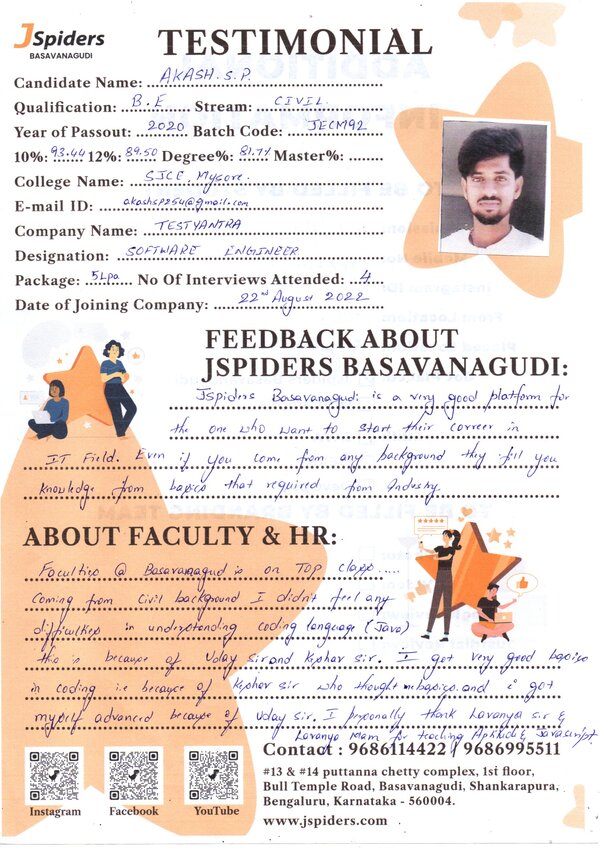 JSpiders
BASAVANAGUDI
TESTIMONIAL
Candidate Name: AKASH.S.P.
Qualification: B.E Stream: CIVIL
Year of Passout: 2020 Batch Code: JECM92
10%: 93.44 12%: 89.50 Degree%: 81.74 Master%:
College Name: SJCE, Mysore.
E-mail ID: akashsp254@gmail.com
Company Name: TESTYANTRA
Designation: SOFTWARE ENGINEER
Package: 5Lpa No Of Interviews Attended: 4
Date of Joining Company: 22nd August 2022
FEEDBACK ABOUT
JSPIDERS BASAVANAGUDI:
Jspiders Basavanagudi is a very good platform for
the one who want to start their carreer in
IT Field. Even if you come from any background they fill you
knowledge from basics that required from Industry
ABOUT FACULTY & HR:
Faculties @ Basavanagud is on TOP class.....
Coming from Civil background I didn't feel any
difficulties in understanding coding language (Java)
this is because of Uday sir and Keshav sir. I got very good basics
in coding i.e because of Keshav sir who thought me basics. and i got
myself advanced because of Uday sir. I personally thank Lavanya sir &
Lavanya Mam for teaching Aptitude & Javascript
Contact : 9686114422 / 9686995511
#13 & #14 puttanna chetty complex, 1st floor,
Bull Temple Road, Basavanagudi, Shankarapura,
Bengaluru, Karnataka - 560004.
www.jspiders.com
Instagram Facebook YouTube